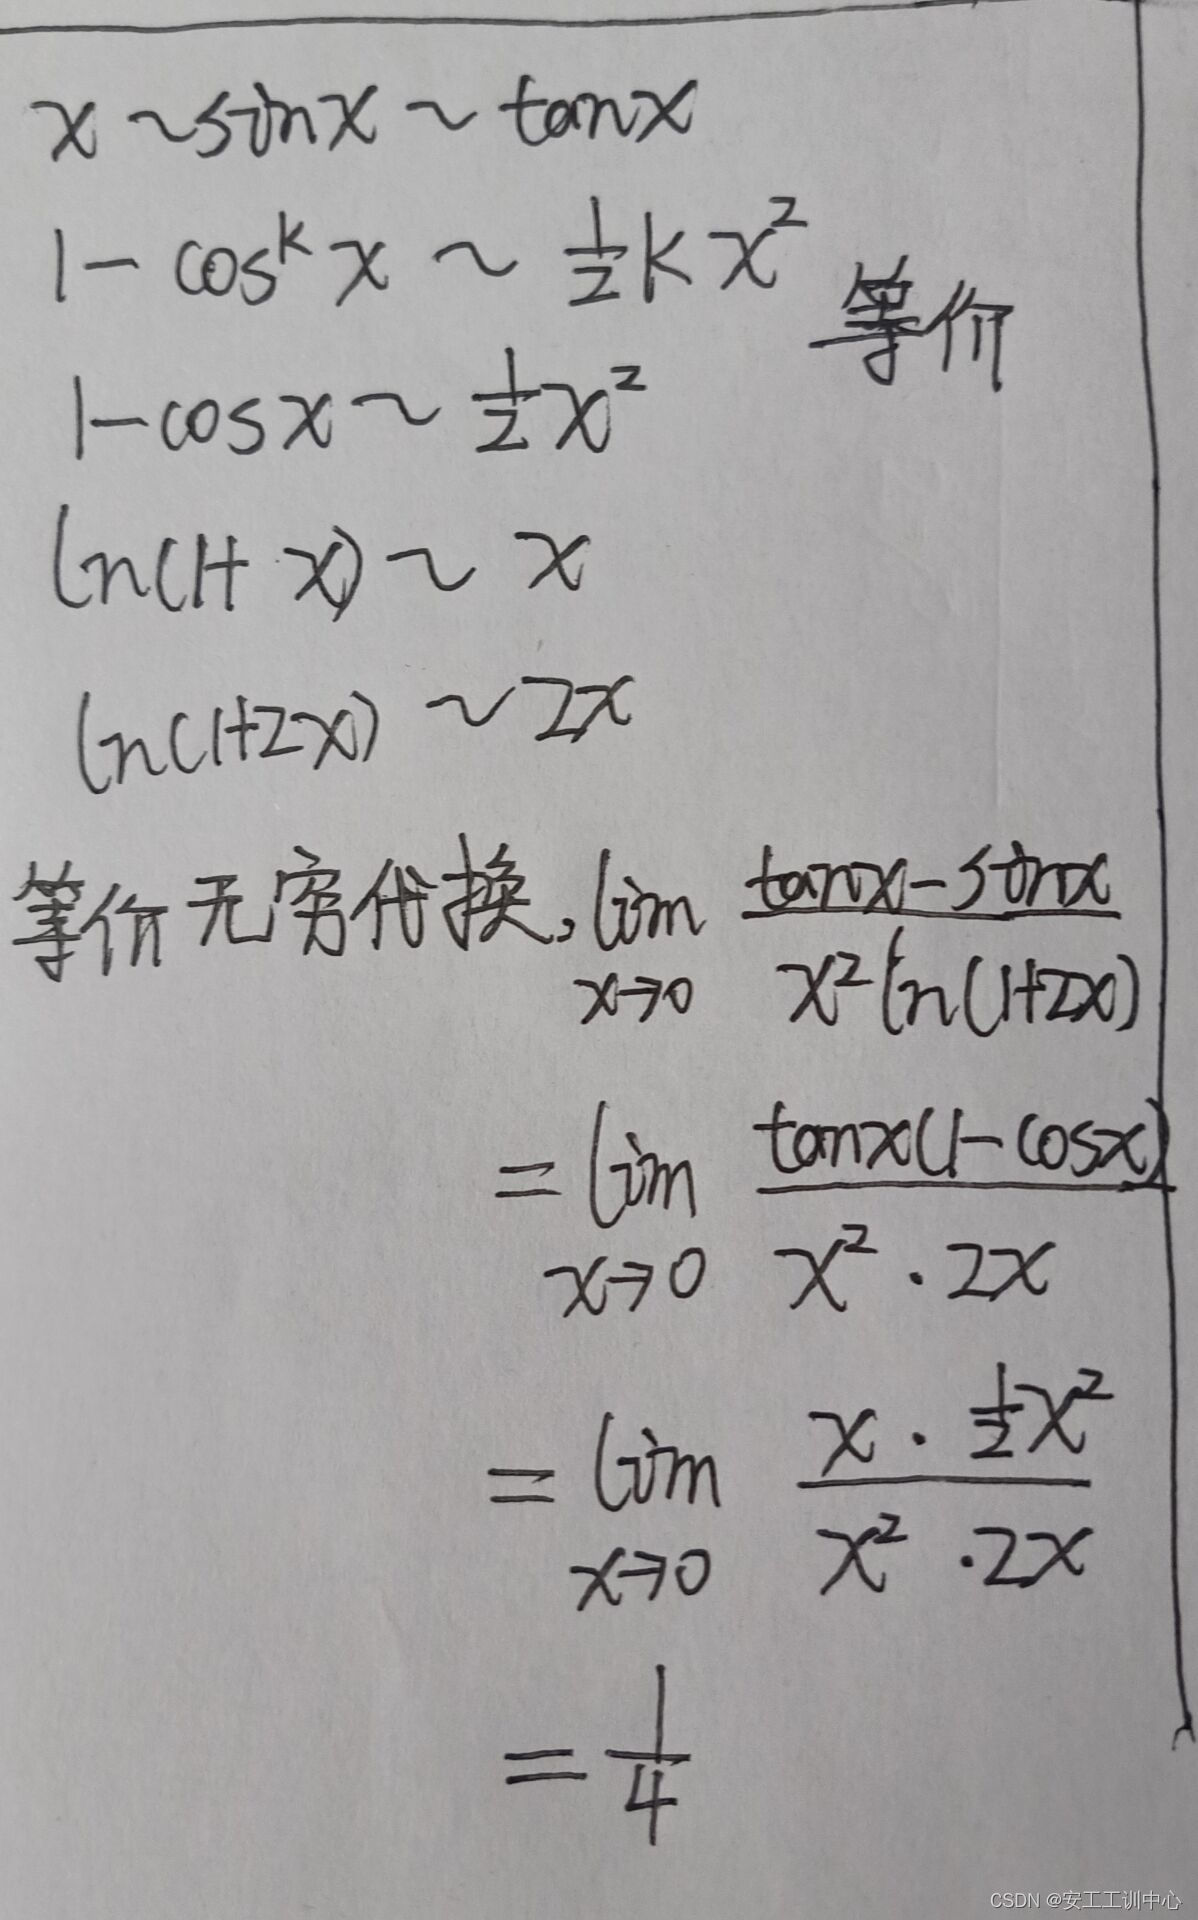 x ~ sinx ~ tanx
1 - cos^k x ~ 1/2 k x²
等价
1 - cosx ~ 1/2 x²
ln(1+x) ~ x
ln(1+2x) ~ 2x
等价无穷代换, lim x→0 (tanx - sinx)/(x² ln(1+2x))
= lim x→0 (tanx(1 - cosx))/(x² · 2x)
= lim x→0 (x · 1/2 x²)/(x² · 2x)
= 1/4
CSDN @安工工训中心